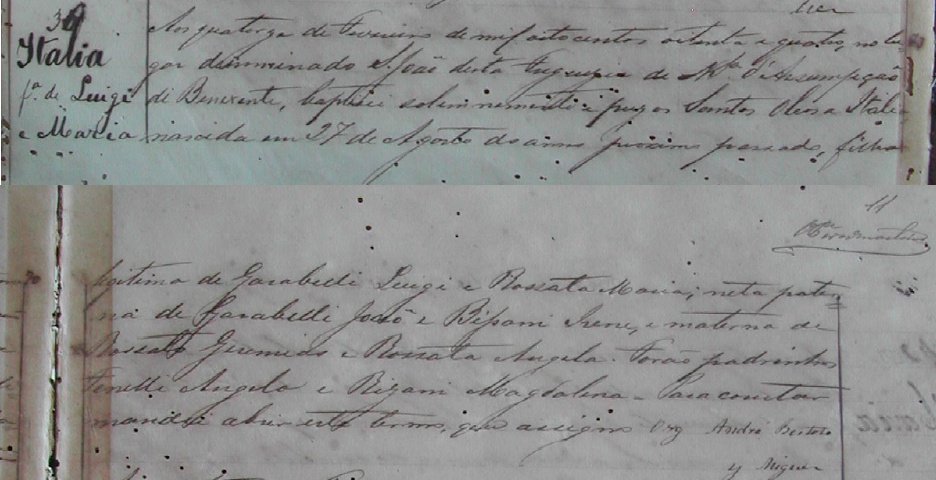 Italia
fª. de Luigi
e Maria
Aos quatorze de Fevereiro de mil oitocentos oitenta e quatro, no lu
gar denominado S. João desta freguezia de Nª. d'Assumpção
di Benevente, baptisei solemnemente e puz os Santos Oleos a Italia
nascida em 27 de Agosto do anno proximo passado, filha
11
legitima de Garabelli Luigi e Rossata Maria; neta pater
na de Garabelli João e Bipani Irene, e materna de
Rossato Geremias e Rossata Angela. Forão padrinhos
Fenelli Angelo e Bizani Magdalena. Para constar
mandei abrir este termo, que assigno O rg André Bertoto
y Miguez